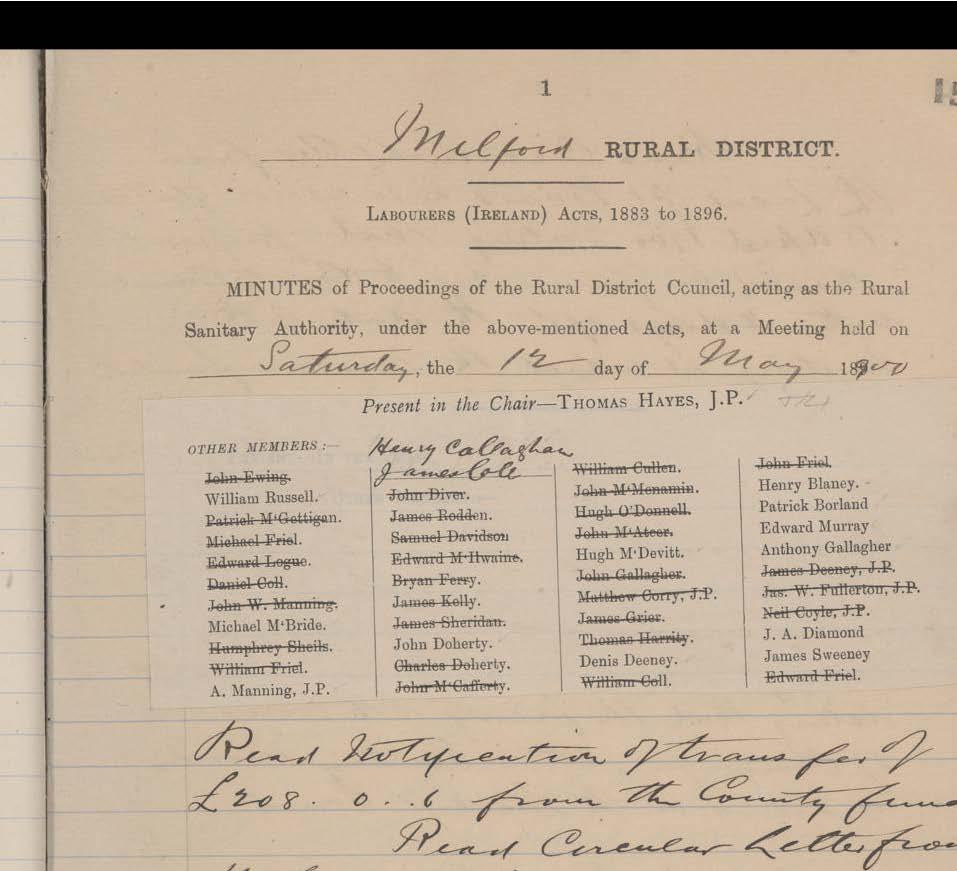 1
15
Milford RURAL DISTRICT.
LABOURERS (IRELAND) ACTS, 1883 to 1896.
MINUTES of Proceedings of the Rural District Council, acting as the Rural
Sanitary Authority, under the above-mentioned Acts, at a Meeting held on
Saturday, the 12 day of May 1900
Present in the Chair—THOMAS HAYES, J.P.
OTHER MEMBERS:—
John Ewing.
William Russell.
Patrick M'Gettigan.
Michael Friel.
Edward Logue.
Daniel Coll.
John W. Manning.
Michael M'Bride.
Humphrey Sheils.
William Friel.
A. Manning, J.P.
Henry Callaghan
James Cole
John Diver.
James Rodden.
Samuel Davidson
Edward M'Ilwaine.
Bryan Ferry.
James Kelly.
James Sheridan.
John Doherty.
Charles Doherty.
John M'Cafferty.
William Cullen.
John M'Menamin.
Hugh O'Donnell.
John M'Ateer.
Hugh M'Devitt.
John Gallagher.
Matthew Corry, J.P.
James Grier.
Thomas Harrity.
Denis Deeney.
William Coll.
John Friel.
Henry Blaney.
Patrick Borland
Edward Murray
Anthony Gallagher
James Deeney, J.P.
Jas. W. Fullerton, J.P.
Neil Coyle, J.P.
J. A. Diamond
James Sweeney
Edward Friel.
Read Notification of transfer of
£208. 0..6 from the County fund
Read Circular Letter from